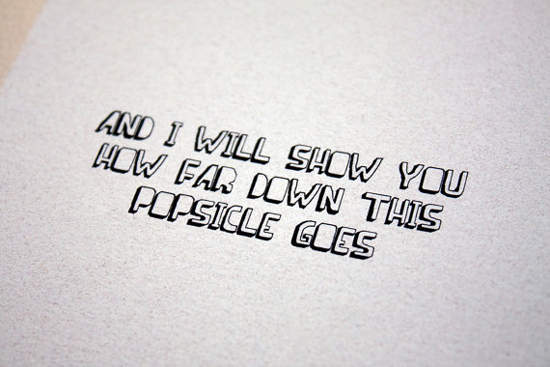 AND I WILL SHOW YOU
HOW FAR DOWN THIS
POPSICLE GOES